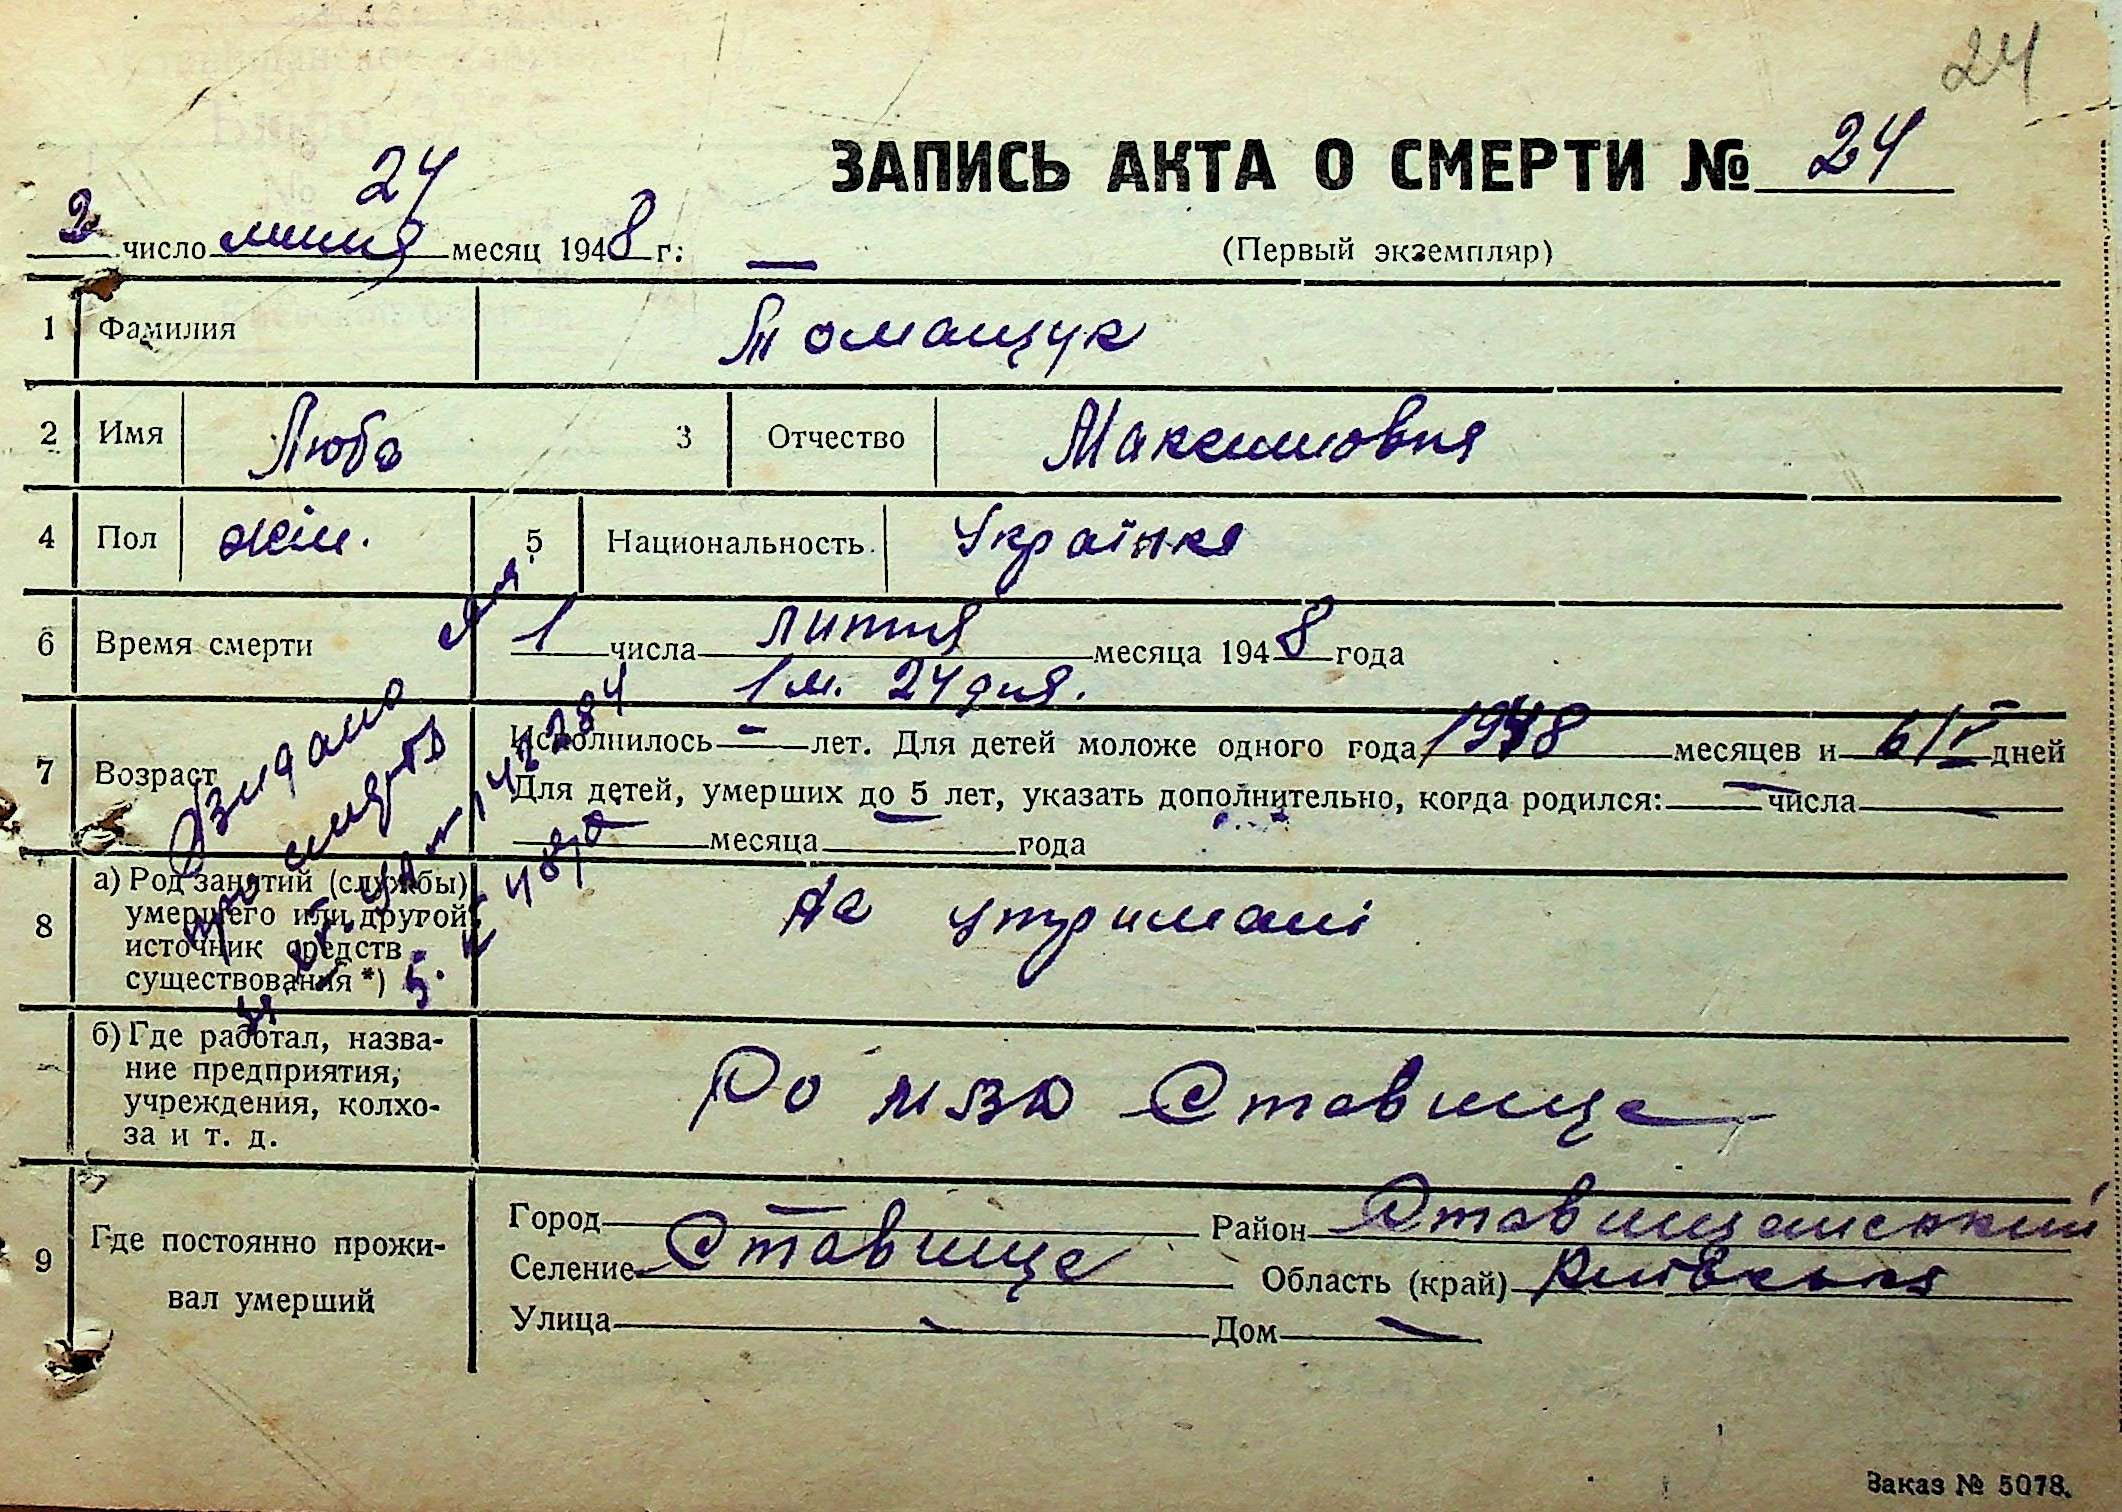 24
ЗАПИСЬ АКТА О СМЕРТИ № 24
24
2 число липня месяц 1948 г.
(Первый экземпляр)
1 Фамилия Томащук
2 Имя Люба 3 Отчество Максимовна
4 Пол жін. 5 Национальность Українка
6 Время смерти 1 числа липня месяца 1948 года
1 м. 24 дня.
7 Возраст Исполнилось — лет. Для детей моложе одного года 1948 месяцев и 6/V дней
Для детей, умерших до 5 лет, указать дополнительно, когда родился: — числа —
— месяца — года
8 а) Род занятий (службы) умершего или другой источник средств существования *) На утримані
б) Где работал, название предприятия, учреждения, колхоза и т. д. Ставище
9 Где постоянно проживал умерший
Город — Район Ставищанський
Селение Ставище Область (край) Київська
Улица — Дом —
Видано
про смерть
Заказ № 5078.